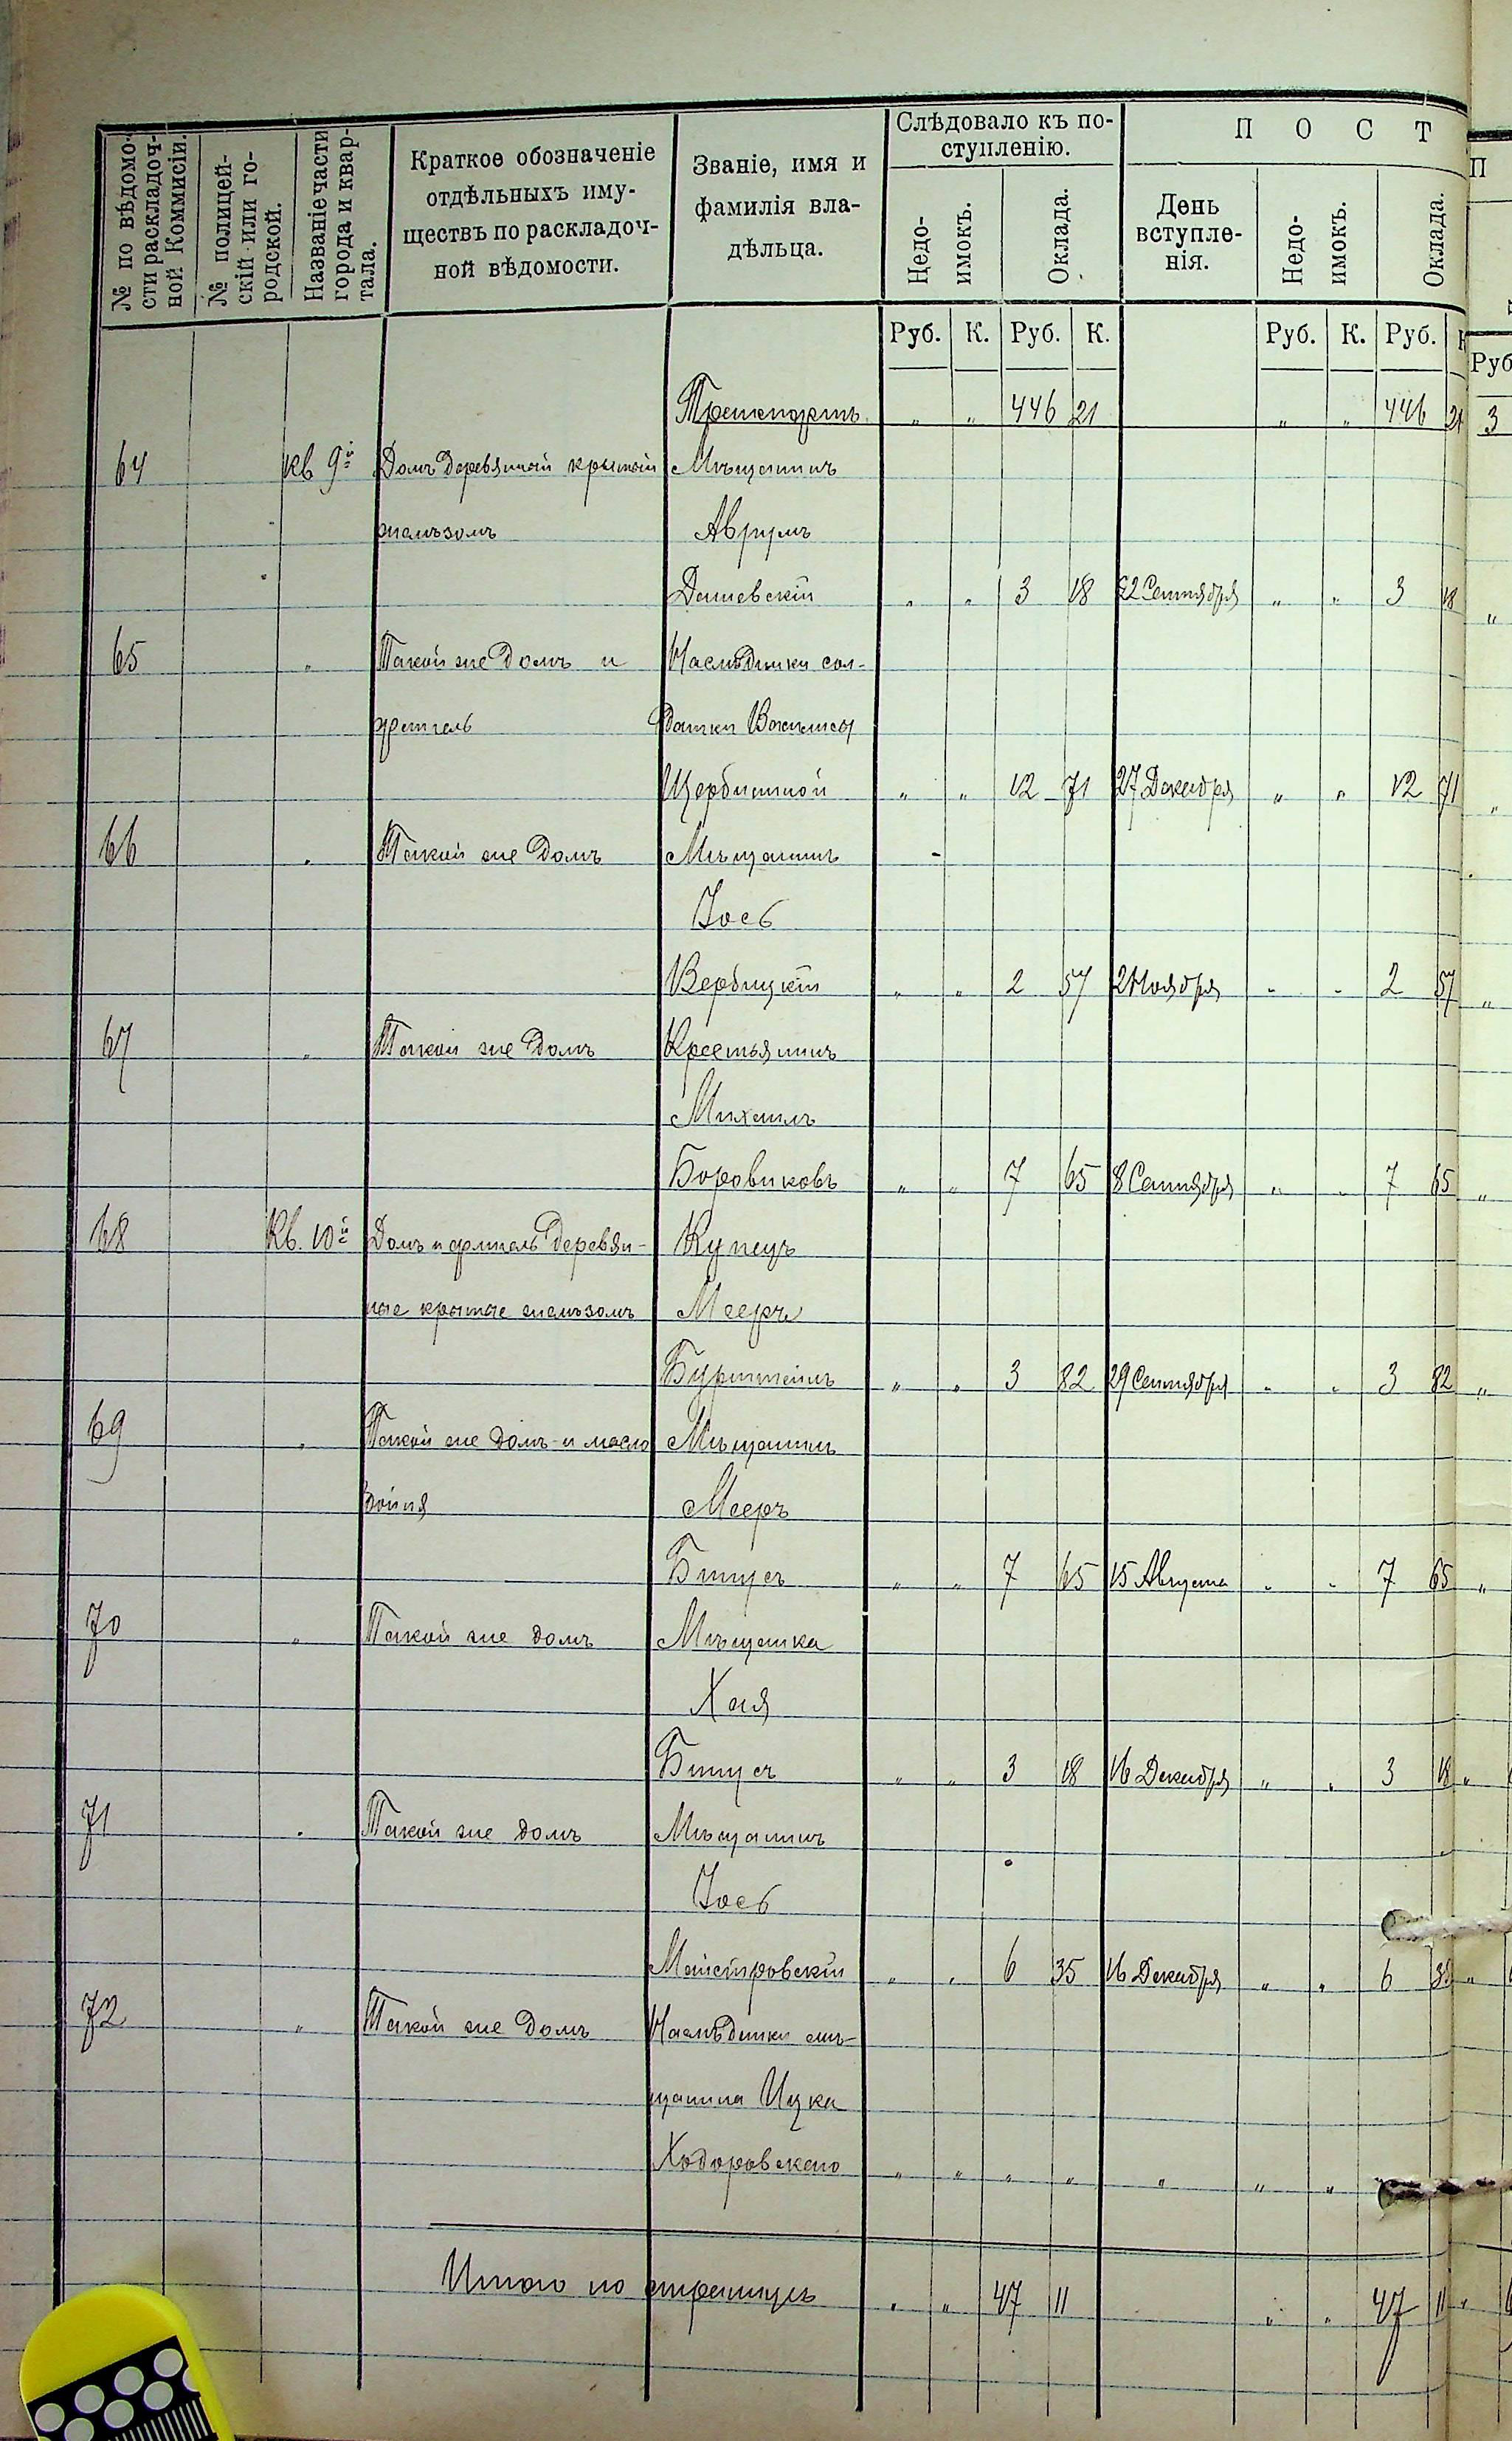 № по вѣдомо-
сти раскладоч-
ной Коммисіи.
№ полицей-
скій или го-
родской.
Названіе части
города и квар-
тала.
Краткое обозначеніе
отдѣльныхъ иму-
ществъ по раскладоч-
ной вѣдомости.
Званіе, имя и
фамилія вла-
дѣльца.
Слѣдовало къ по-
ступленію.
Недо-
имокъ.
Оклада.
П О С Т
День
вступле-
нія.
Недо-
имокъ.
Оклада.
Руб. К. Руб. К. Руб. К. Руб. К
Транспортъ " " 446 21 " " 446 21
64 кв 9й Домъ деревянный крытый Мѣщанинъ
желѣзомъ Аврумъ
Дашевскій " " 3 18 22 Сентября " " 3 18
65 " Такой же домъ и Наслѣдники сол-
флигель датки Василисы
Щербининой " " 12 71 27 Декабря " " 12 71
66 " Такой же домъ Мѣщанинъ
Іось
Вербицкій " " 2 57 2 Ноября " " 2 57
67 " Такой же домъ Крестьянинъ
Михаилъ
Боровиковъ " " 7 65 8 Сентября " " 7 65
68 Кв. 10й Домъ и флигель деревян- Купецъ
ные крытые желѣзомъ Мееръ
Бурштейнъ " " 3 82 29 Сентября " " 3 82
69 " Такой же домъ и масло Мѣщанинъ
бойня Мееръ
" " 7 65 15 Августа " " 7 65
70 " Такой же домъ Мѣщанка
Хая
" " 3 18 16 Декабря " " 3 18
71 " Такой же домъ Мѣщанинъ
Іось
Майстровскій " " 6 35 16 Декабря " " 6 35
72 " Такой же домъ Наслѣдники мѣ-
щанина Ицка
Ходоровскаго " " " " " " "
Итого по страницѣ " " 47 11 " " 47 11